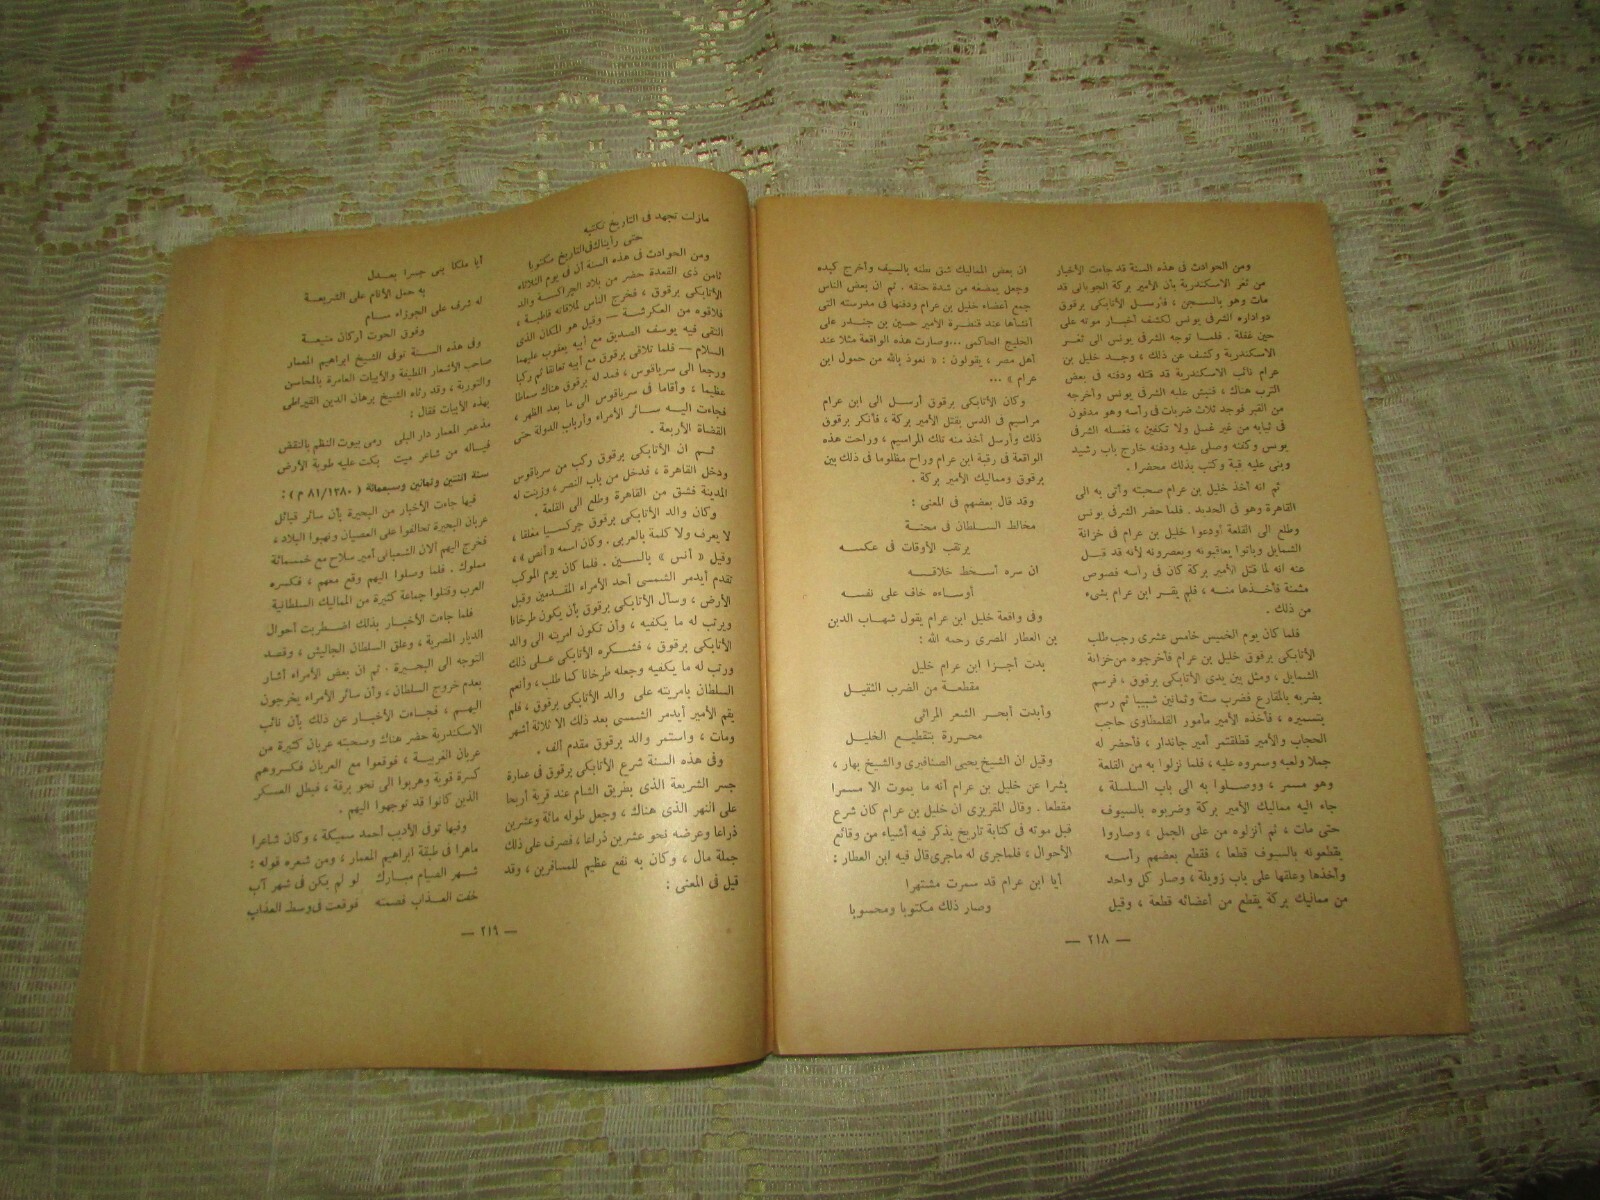 ومن الحوادث فى هذه السنة قد جاءت الأخبار
من ثغر الاسكندرية بأن الأمير بركة الجوبانى قد
مات وهو بالسجن ، فأرسل الأتابكى برقوق
دواداره الشرفى يونس لكشف أخبار موته على
حين غفلة . فلما توجه الشرفى يونس الى ثغر
الاسكندرية وكشف عن ذلك ، وجد خليل بن
عرام نائب الاسكندرية قد قتله ودفنه فى بعض
الترب هناك ، فنبش عليه الشرفى يونس وأخرجه
من القبر فوجد ثلاث ضربات فى رأسه وهو مدفون
فى ثيابه من غير غسل ولا تكفين ، فغسله الشرفى
يونس وكفنه وصلى عليه ودفنه خارج باب رشيد
وبنى عليه قبة وكتب بذلك محضرا .
ثم انه أخذ خليل بن عرام صحبته وأتى به الى
القاهرة وهو فى الحديد . فلما حضر الشرفى يونس
وطلع الى القلعة أودعوا خليل بن عرام فى خزانة
الشمايل وباتوا يعاقبونه ويعصرونه لأنه قد قيل
عنه انه لما قتل الأمير بركة كان فى رأسه فصوص
مثمنة فأخذها منه ، فلم يقر ابن عرام بشىء
من ذلك .
فلما كان يوم الخميس خامس عشرى رجب طلب
الأتابكى برقوق خليل بن عرام فأخرجوه من خزانة
الشمايل ، ومثل بين يدى الأتابكى برقوق ، فرسم
بضربه بالمقارع فضرب ستة وثمانين شيبا ثم رسم
بتسميره ، فأخذه الأمير مأمور القلمطاوى حاجب
الحجاب والأمير قطلقتمر أمير جاندار ، فأحضر له
جملا ولعبه وسمروه عليه ، فلما نزلوا به من القلعة
وهو مسمر ، ووصلوا به الى باب السلسلة ،
جاء اليه مماليك الأمير بركة وضربوه بالسيوف
حتى مات ، ثم أنزلوه من على الجمل ، وصاروا
يقطعونه بالسيوف قطعا ، فقطع بعضهم رأسه
وأخذها وعلقها على باب زويلة ، وصار كل واحد
من مماليك بركة يقطع من أعضائه قطعة ، وقيل
ان بعض المماليك شق بطنه بالسيف وأخرج كبده
وجعل يمضغه من شدة حنقه . ثم ان بعض الناس
جمع أعضاء خليل بن عرام ودفنها فى مدرسته التى
أنشأها عند قنطرة الأمير حسين بن جندر على
الخليج الحاكمى ... وصارت هذه الواقعة مثلا عند
أهل مصر ، يقولون : « نعوذ بالله من حمول ابن
عرام » ...
وكان الأتابكى برقوق أرسل الى ابن عرام
مراسيم فى الدس بقتل الأمير بركة ، فأنكر برقوق
ذلك وأرسل أخذ منه تلك المراسيم ، وراحت هذه
الواقعة فى رقبة ابن عرام وراح مظلوما فى ذلك بين
برقوق ومماليك الأمير بركة .
وقد قال بعضهم فى المعنى :
مخالط السلطان فى محنة
يرتقب الأوقات فى عكسه
ان سره أسخط خلاقه
أوساءه خاف على نفسه
وفى واقعة خليل ابن عرام يقول شهاب الدين
بن العطار المصرى رحمه الله :
بدت أجزا ابن عرام خليل
مقطعة من الضرب الثقيل
وأبدت أبحر الشعر المراثى
محررة بتقطيع الخليل
وقيل ان الشيخ يحيى الصنافيرى والشيخ بهار ،
بشرا عن خليل بن عرام أنه ما يموت الا مسمرا
مقطعا . وقال المقريزى ان خليل بن عرام كان شرع
قبل موته فى كتابة تاريخ يذكر فيه أشياء من وقائع
الأحوال ، فلما جرى له ماجرى قال فيه ابن العطار :
أيا ابن عرام قد سمرت مشتهرا
وصار ذلك مكتوبا ومحسوبا
— ٢١٨ —
مازلت تجهد فى التاريخ تكتبه
حتى رأيناك فى التاريخ مكتوبا
ومن الحوادث فى هذه السنة أن فى يوم الثلاثاء
ثامن ذى القعدة حضر من بلاد الجراكسة والد
الأتابكى برقوق ، فخرج الناس لملاقاته قاطبة ،
فلاقوه من العكرشة — وقيل هو المكان الذى
التقى فيه يوسف الصديق مع أبيه يعقوب عليهما
السلام — فلما تلاقى برقوق مع أبيه تعانقا ثم ركبا
ورجعا الى سرياقوس ، فمد له برقوق هناك سماطا
عظيما ، وأقاما فى سرياقوس الى ما بعد الظهر ،
فجاءت اليه سائر الأمراء وأرباب الدولة حتى
القضاة الأربعة .
ثم ان الأتابكى برقوق ركب من سرياقوس
ودخل القاهرة ، فدخل من باب النصر ، وزينت له
المدينة فشق من القاهرة وطلع الى القلعة .
وكان والد الأتابكى برقوق جركسيا مغلقا ،
لا يعرف ولا كلمة بالعربى . وكان اسمه « أنص » ،
وقيل « أنس » بالسين . فلما كان يوم الموكب
تقدم أيدمر الشمسى أحد الأمراء المقدمين وقبل
الأرض ، وسأل الأتابكى برقوق بأن يكون طرخانا
ويرتب له ما يكفيه ، وأن تكون امريته الى والد
الأتابكى برقوق ، فشكره الأتابكى على ذلك
ورتب له ما يكفيه وجعله طرخانا كما طلب ، وأنعم
السلطان بامريته على والد الأتابكى برقوق ، فلم
يقم الأمير أيدمر الشمسى بعد ذلك الا ثلاثة أشهر
ومات ، واستمر والد برقوق مقدم ألف .
وفى هذه السنة شرع الأتابكى برقوق فى عمارة
جسر الشريعة الذى بطريق الشام عند قرية أريحا
على النهر الذى هناك ، وجعل طوله مائة وعشرين
ذراعا وعرضه نحو عشرين ذراعا ، فصرف على ذلك
جملة مال ، وكان به نفع عظيم للمسافرين ، وقد
قيل فى المعنى :
أيا ملكا بنى جسرا بعدل
به حمل الأنام على الشريعة
له شرف على الجوزاء سام
وفوق الحوت أركان منيعة
وفى هذه السنة توفى الشيخ ابراهيم المعمار
صاحب الأشعار اللطيفة والأبيات العامرة بالمحاسن
والتورية ، وقد رثاه الشيخ برهان الدين القيراطى
بهذه الأبيات فقال :
مذ عمر المعمار دار البلى رمى بيوت النظم بالنقض
فياله من شاعر ميت بكت عليه طوبة الأرض
سنة اثنتين وثمانين وسبعمائة ( ٨١/١٣٨٠ م ) :
فيها جاءت الأخبار من البحيرة بأن سائر قبائل
عربان البحيرة تحالفوا على العصيان ونهبوا البلاد ،
فخرج اليهم آلان الشعبانى أمير سلاح مع خمسمائة
مملوك . فلما وصلوا اليهم وقع معهم ، فكسره
العرب وقتلوا جماعة كثيرة من المماليك السلطانية
فلما جاءت الأخبار بذلك اضطربت أحوال
الديار المصرية ، وعلق السلطان الجاليش ، وقصد
التوجه الى البحيرة . ثم ان بعض الأمراء أشار
بعدم خروج السلطان ، وأن سائر الأمراء يخرجون
اليهم ، فجاءت الأخبار عن ذلك بأن نائب
الاسكندرية حضر هناك وصحبته عربان كثيرة من
عربان الغربية ، فوقعوا مع العربان فكسروهم
كسرة قوية وهربوا الى نحو برقة ، فبطل العسكر
الذين كانوا قد توجهوا اليهم .
وفيها توفى الأديب أحمد سميكة ، وكان شاعرا
ماهرا فى طبقة ابراهيم المعمار ، ومن شعره قوله :
شهر الصيام مبارك لو لم يكن فى شهر آب
خفت العذاب فصمته فوقعت فى وسط العذاب
— ٢١٩ —